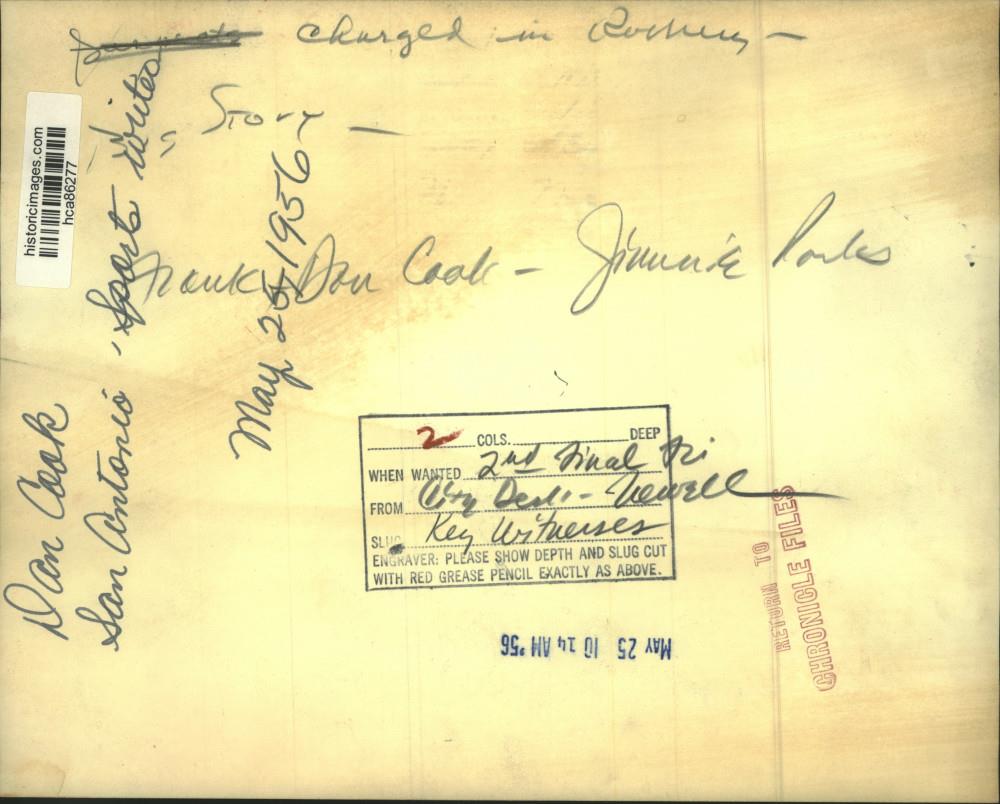 charged in
Story –
Frank Don Cook – Jimmie Parks
Don Cook
San Antonio, Sports Writer
May 25, 1956
historicimages.com
hca86277
2 COLS. DEEP
WHEN WANTED 2nd Final Fri
FROM City Desk – Newell
SLUG Key Witnesses
ENGRAVER: PLEASE SHOW DEPTH AND SLUG CUT
WITH RED GREASE PENCIL EXACTLY AS ABOVE.
MAY 25 10 14 AM '56
RETURN TO
CHRONICLE FILES